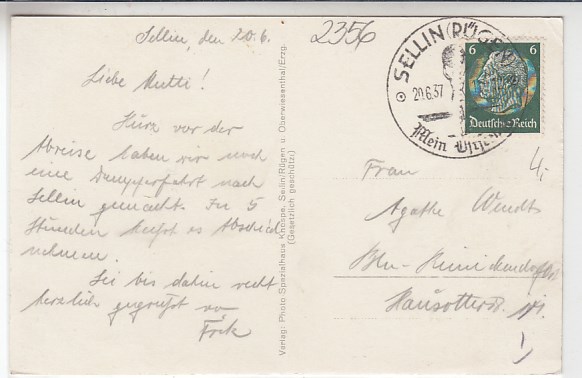 Sellin, den 20.6.
Liebe Mutti!
Kurz vor der
Abreise haben wir noch
eine Dampferfahrt nach
Sellin gemacht. In 5
Stunden heißt es Abschied
nehmen.
Sei bis dahin recht
herzlich gegrüßt von
Verlag: Photo Spezialhaus Knospe, Sellin/Rügen u. Oberwiesenthal/Erzg.
(Gesetzlich geschützt)
2356
SELLIN (RÜGEN)
20.6.37
Mein
6 6
Deutsches Reich
4,-
Frau
Agathe Wendt
Bln-Reinickendorf
Hausotterstr.